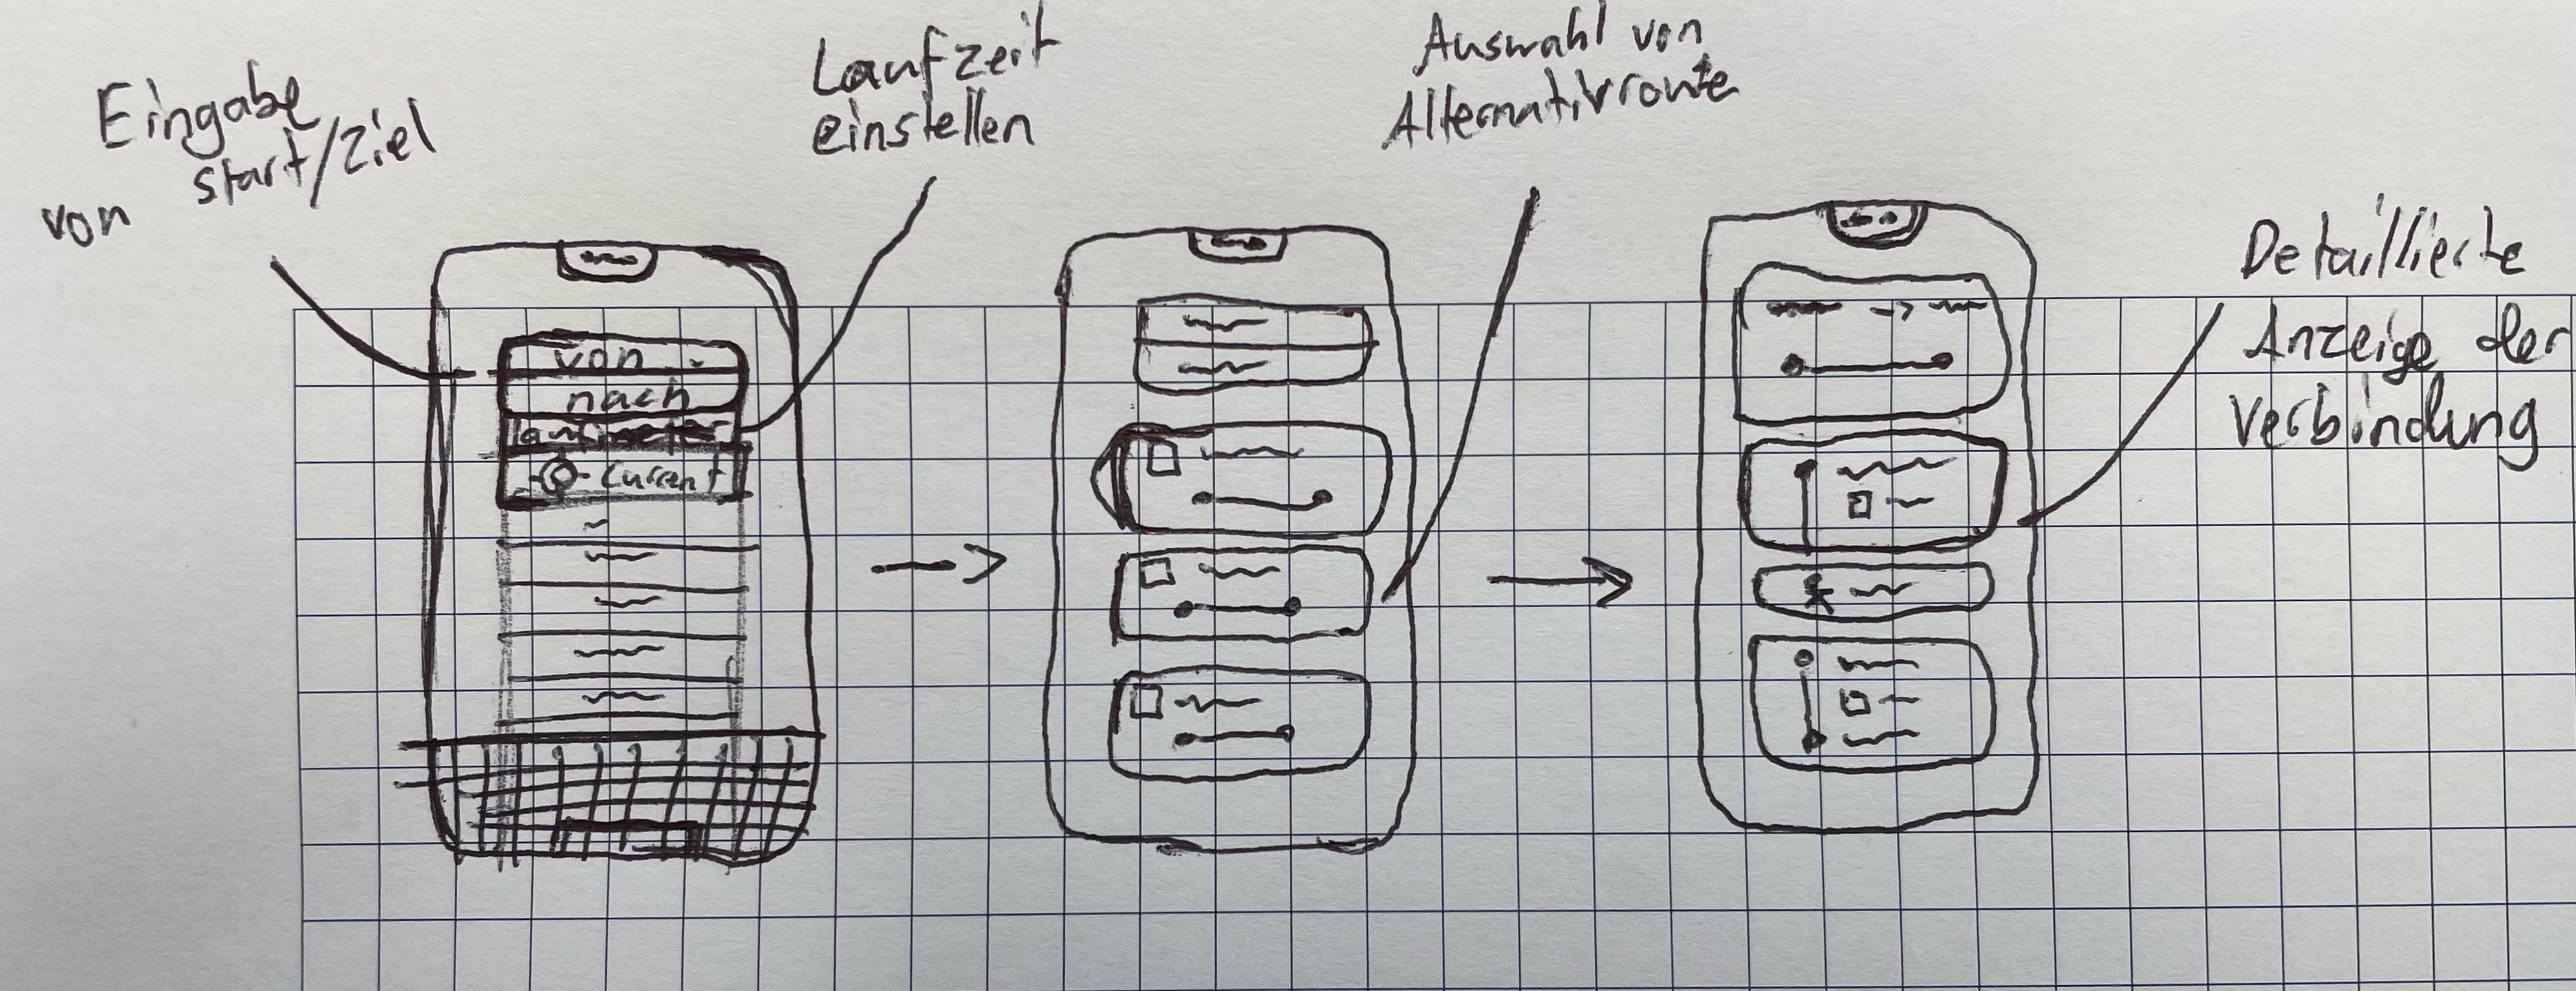 Eingabe
von start/Ziel
Laufzeit
einstellen
Auswahl von
Alternativroute
Detaillierte
Anzeige der
Verbindung
von
nach
Current